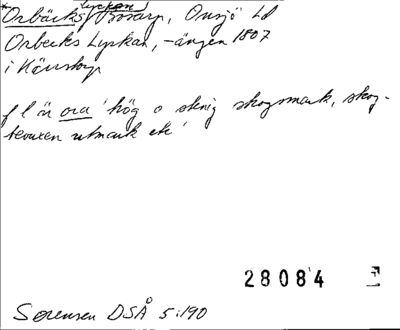 *Orbäckslyckan, Bosarp, Onsjö hd
Orbecks Lyckan, -ängen 1807
i Kärstorp
f l ä ora 'hög o stenig skogsmark, skog-
beväxen utmark etc'
28084 E
Sørensen DSÅ 5:190